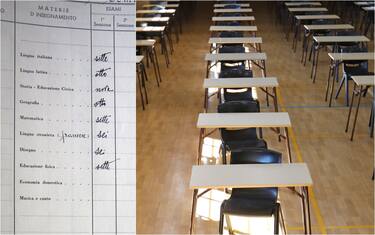 MATERIE
D'INSEGNAMENTO
ESAMI
1ª Sessione
2ª Sessione
Lingua italiana sette
Lingua latina otto
Storia - Educazione Civica nove
Geografia otto
Matematica sette
Lingua straniera (francese) sei
Disegno sei
Educazione fisica sette
Economia domestica
Musica e canto